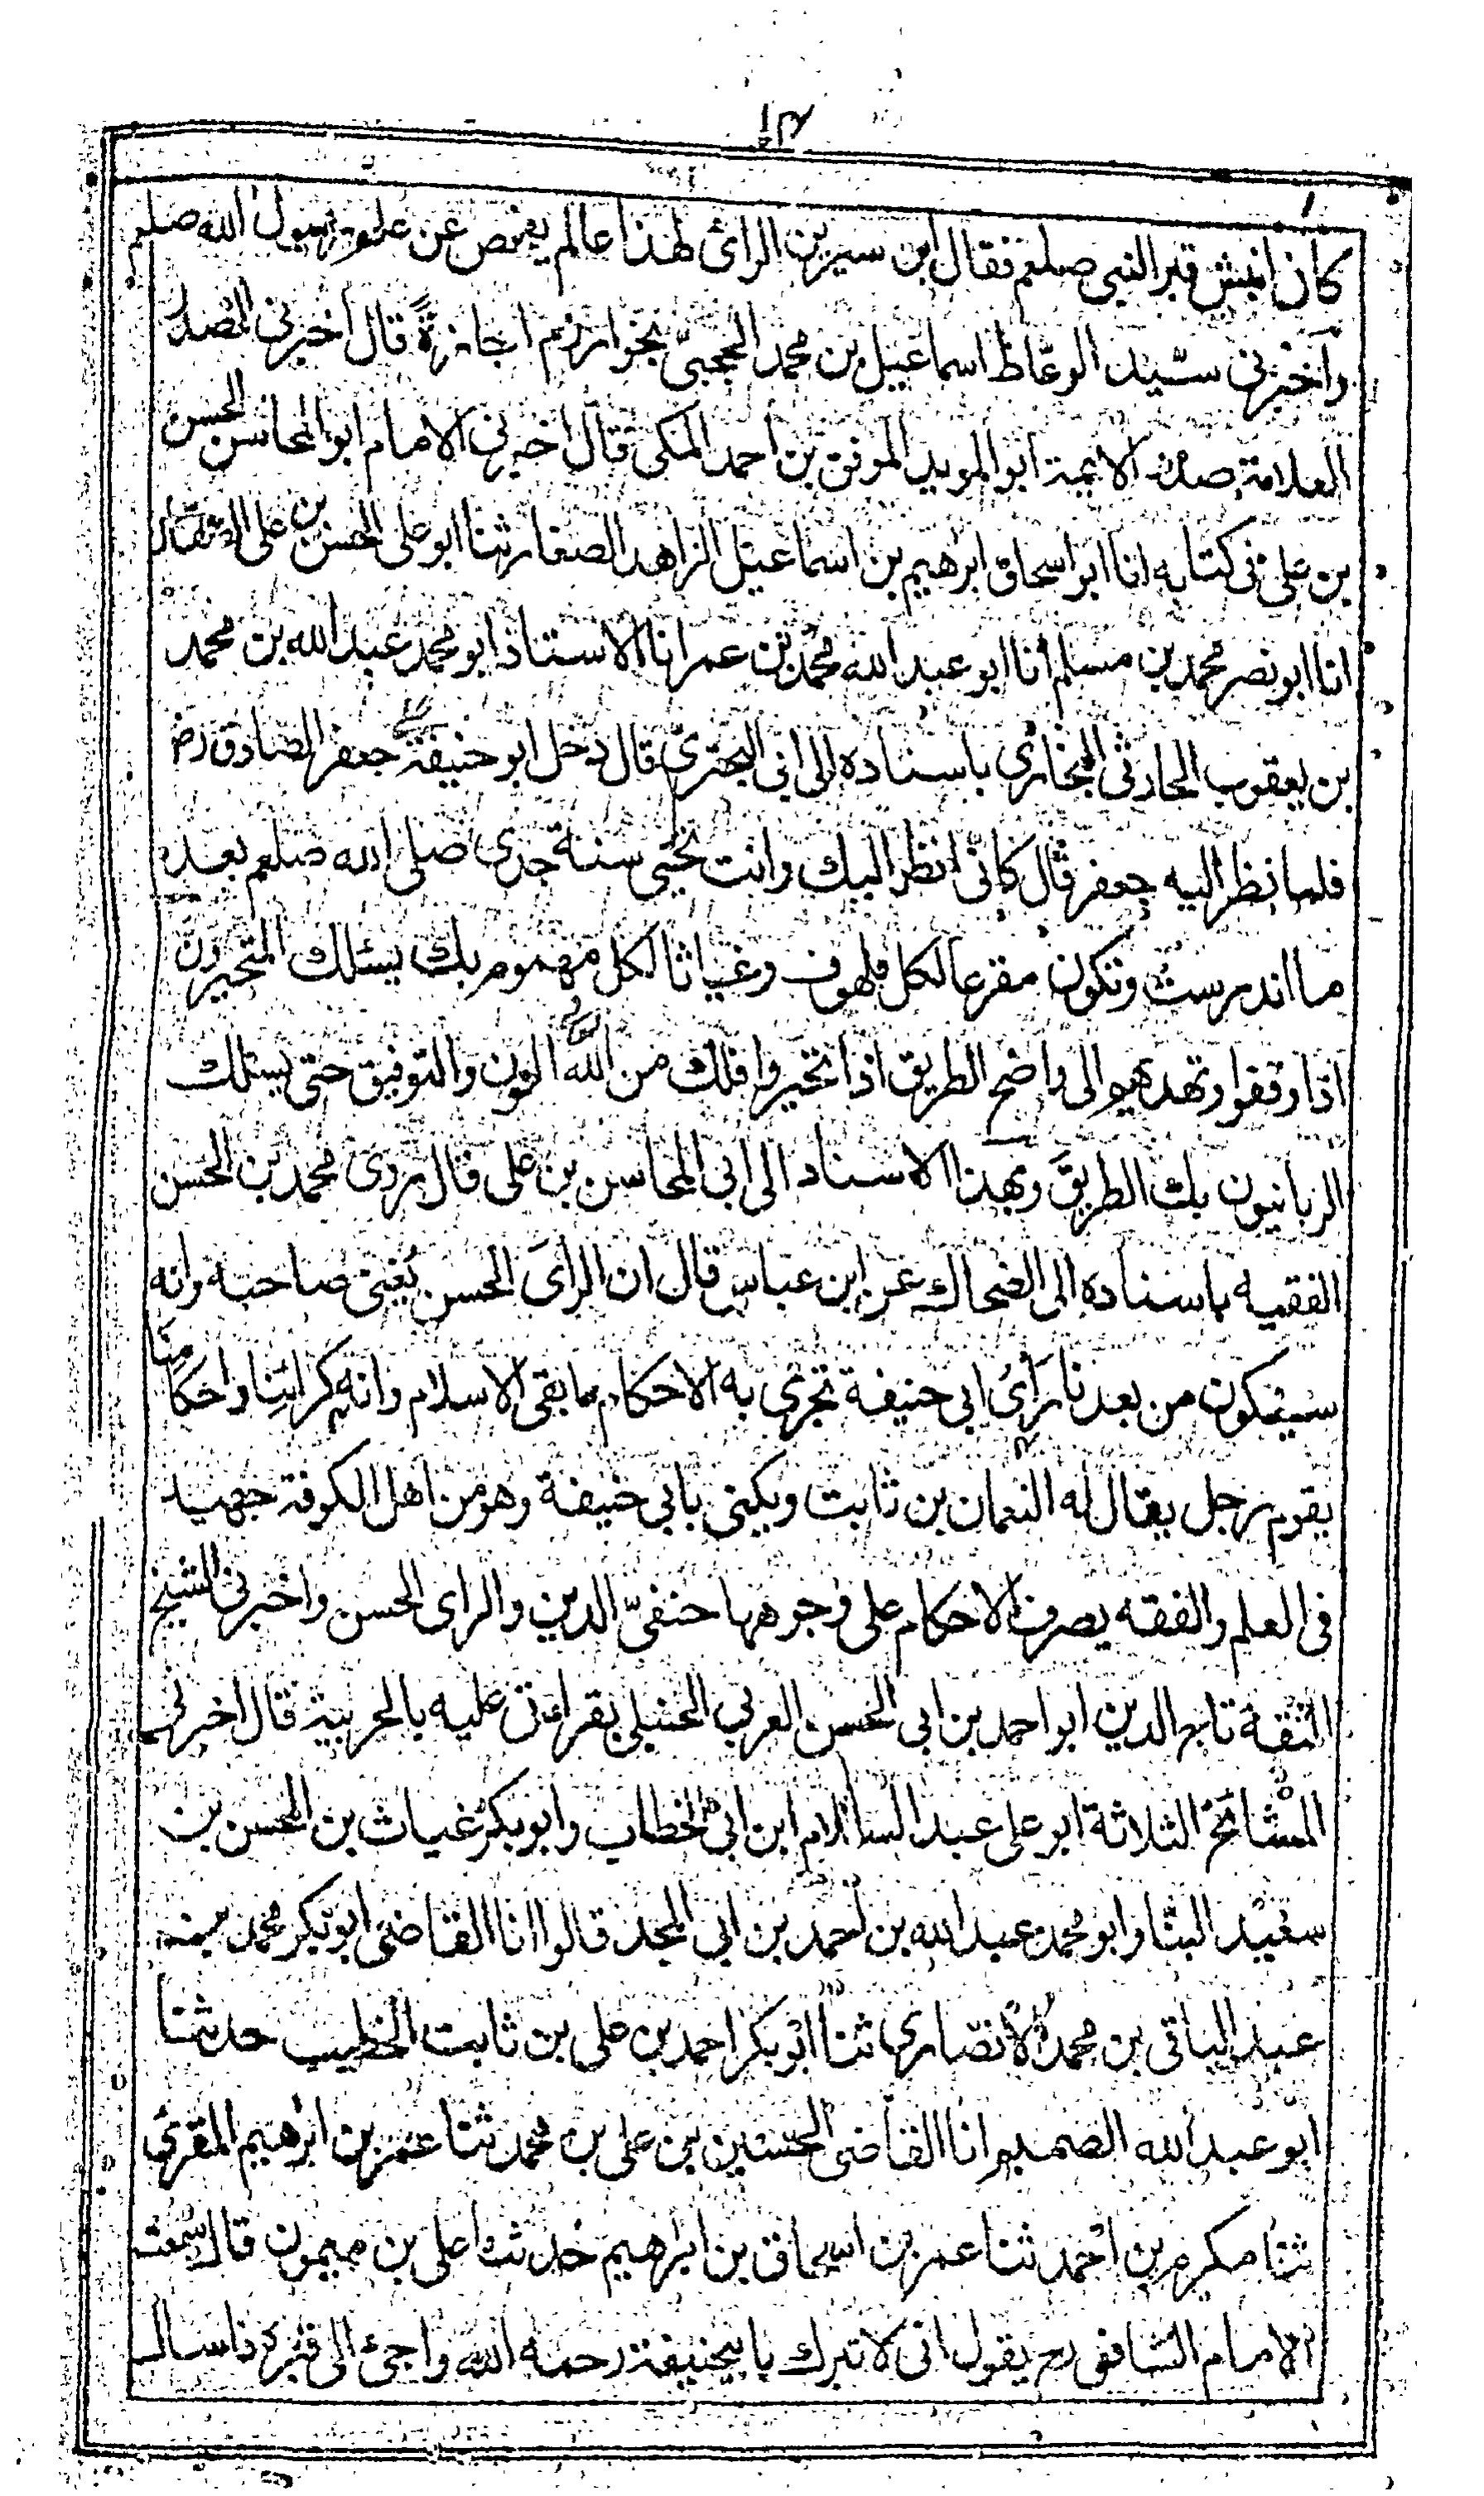 ١٣
كان انبش قبر النبى صلعم فقال ابن سيرين الرائى لهذا عالم يفحص عن علوم رسول الله صلعم
واخبرنى سيد الوعاظ اسماعيل بن محمد الحجبىّ بخوارزم اجازةً قال اخبرنى الصدر
العلامة صدر الايمة ابو المويد الموفق بن احمد المكى قال اخبرنى الامام ابو المحاسن الحسن
بن على فى كتابه انا ابو اسحاق ابرهيم بن اسماعيل الزاهد الصفار ثنا ابو على الحسن بن على
انا ابو نصر محمد بن مسلم انا ابو عبد الله محمد بن عمر انا الاستاذ ابو محمد عبد الله بن محمد
بن يعقوب الحارثى البخارى باسناده الى ابى البخترى قال دخل ابو حنيفة جعفر الصادق رض
فلما نظر اليه جعفر قال كانى انظر اليك وانت تحيى سنة جدى صلى الله صلعم بعد
ما اندرست وتكون مفزعا لكل ملهوف وغياثا لكل مهموم بك يسئلك المتحيرون
اذا وقفوا وتهديهم الى واضح الطريق اذا تحيروا فلك من الله العون والتوفيق حتى يسلك
الربانيون بك الطريق وبهذا الاسناد الى ابى المحاسن بن على قال روى محمد بن الحسن
الفقيه باسناده الى الضحاك عن ابن عباس قال ان الراى الحسن يغنى صاحبه وانه
سيكون من بعدنا رأى ابى حنيفة تجرى به الاحكام ما بقى الاسلام وانه كراينا واحكامنا
يقوم رجل يقال له النعمان بن ثابت ويكنى بابى حنيفة وهو من اهل الكوفة جهيد
فى العلم والفقه يصرف الاحكام على وجوهها حنفىّ الدين والراى الحسن واخبرنى الشيخ
الثقة تاج الدين ابو احمد بن ابى الحسن العربى الحنبلى بقراءتى عليه بالحربية قال اخبرنى
المشائخ الثلاثة ابو على عبد السلام ابن ابى الخطاب وابوبكر غياث بن الحسن بن
سعيد البنا وابو محمد عبد الله بن احمد بن ابى المجد قالوا انا القاضى ابوبكر محمد بن
عبد الباقى بن محمد الانصارى ثنا ابوبكر احمد بن على بن ثابت الخطيب حدثنا
ابو عبد الله انا القاضى الحسين بن على بن محمد ثنا عمر بن ابرهيم المقرئ
ثنا مكرم بن احمد ثنا عمر بن اسحاق بن ابرهيم حدثنا على بن ميمون قال سمعت
الامام الشافعى رح يقول انى لاتبرك بابيحنيفة رحمه الله واجئ الى قبره